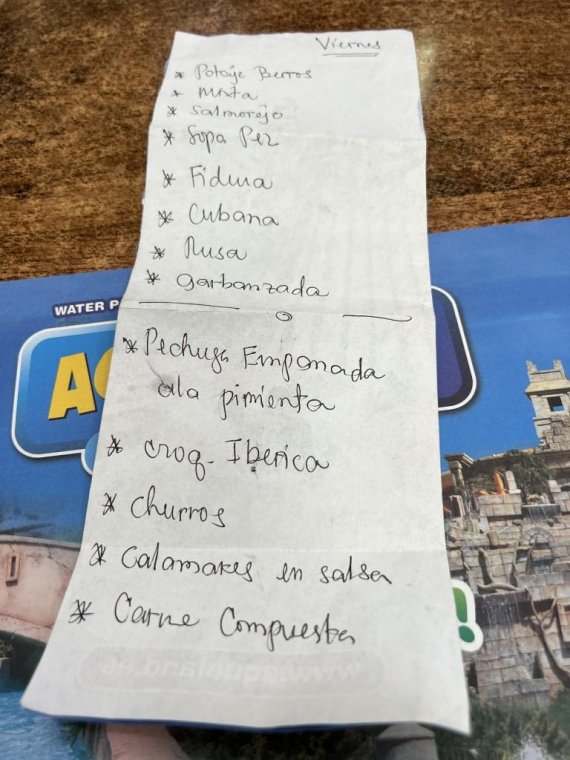 Viernes
* Potaje Berros
* Mixta
* Salmorejo
* Sopa Pez
* Fideua
* Cubana
* Rusa
* Garbanzada
* Pechuga Emponada
ala pimienta
* Croq. Iberica
* Churros
* Calamares en salsa
* Carne Compuesta
WATER P
A
!
www.aqualand.es